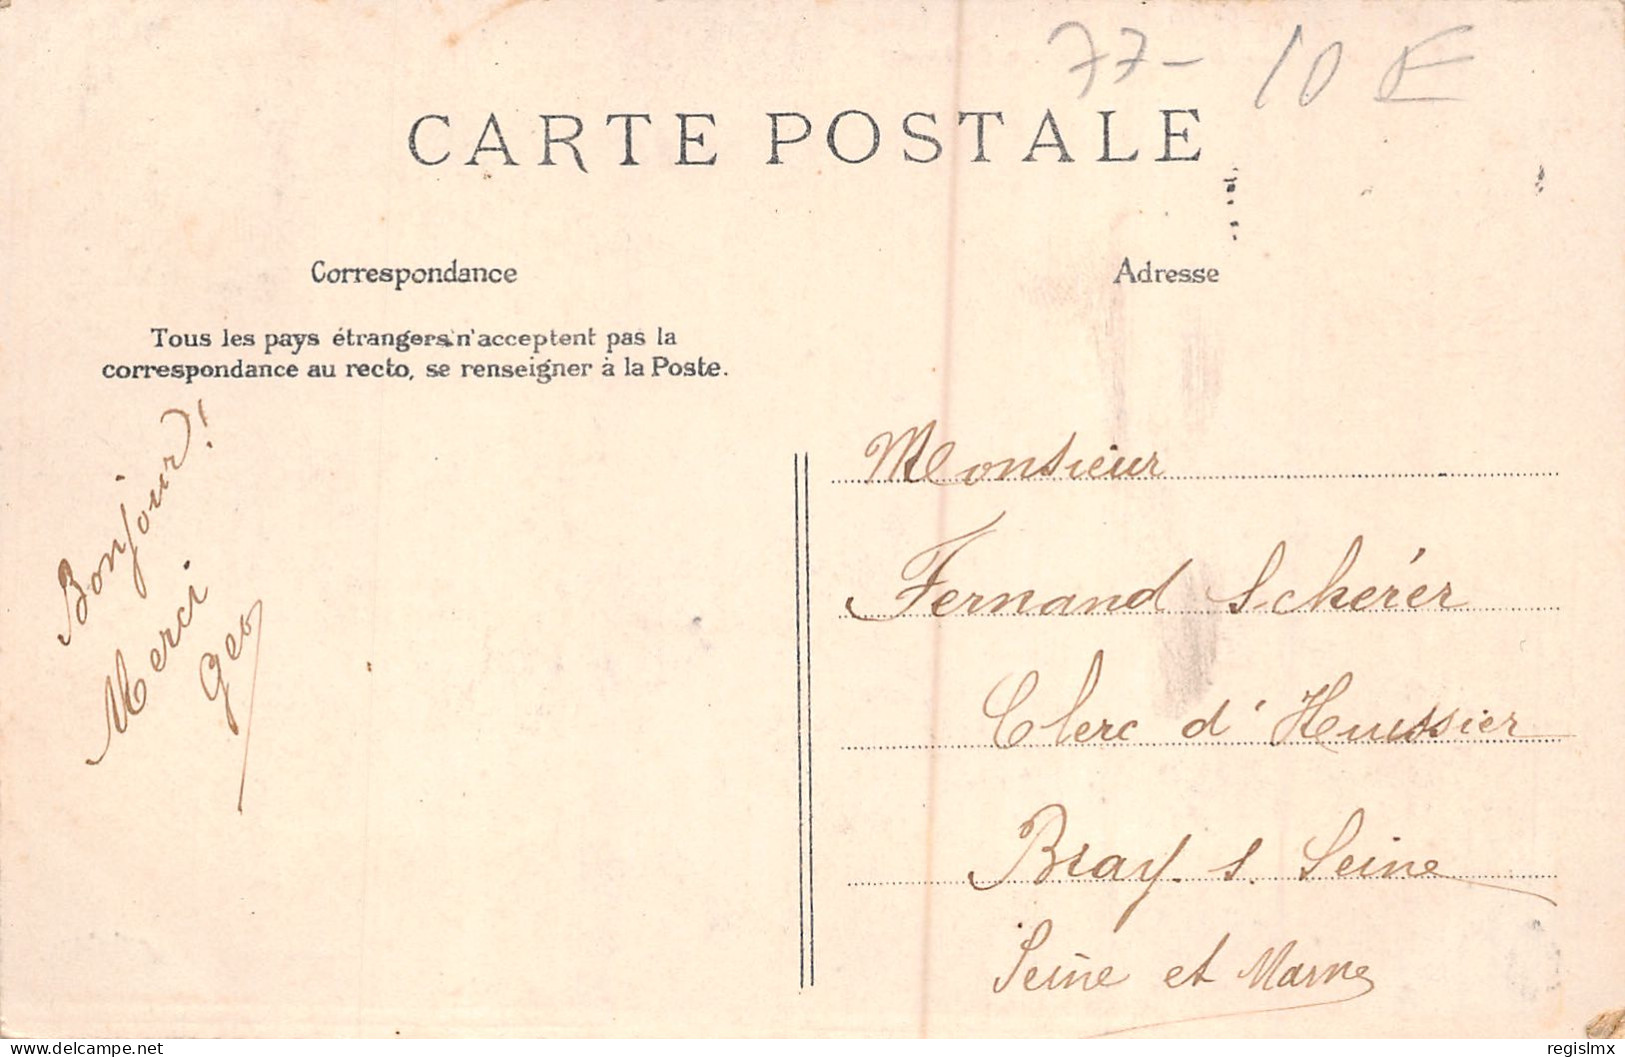 77- 10 E
CARTE POSTALE
Correspondance
Adresse
Tous les pays étrangers n'acceptent pas la
correspondance au recto, se renseigner à la Poste.
Bonjour!
Merci
Geo
Monsieur
Fernand Schérer
Clerc d'Huissier
Bray. s. Seine
Seine et Marne
delcampe.net
regislmx